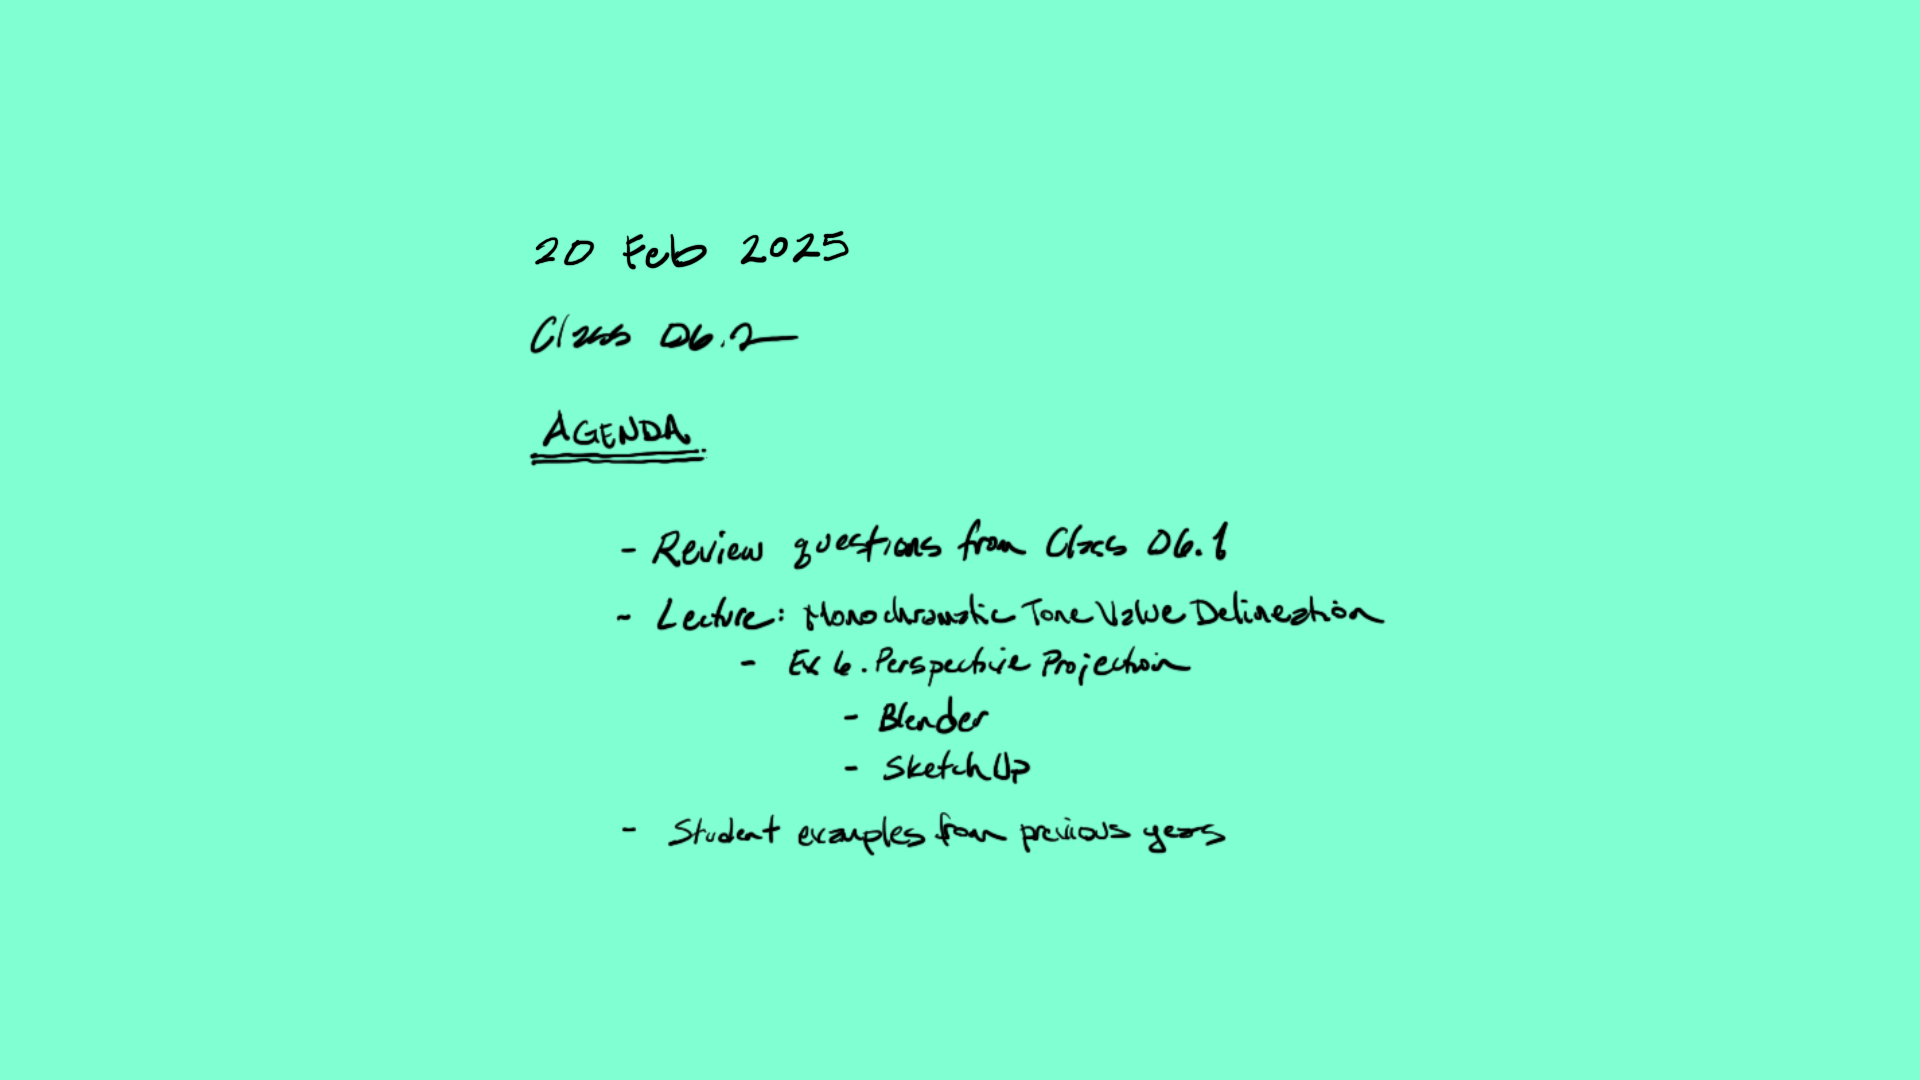 20 Feb 2025
Class 06.2
AGENDA
- Review questions from Class 06.1
- Lecture: Monochromatic Tone Value Delineation
- Ex 6. Perspective Projection
- Blender
- SketchUp
- Student examples from previous years